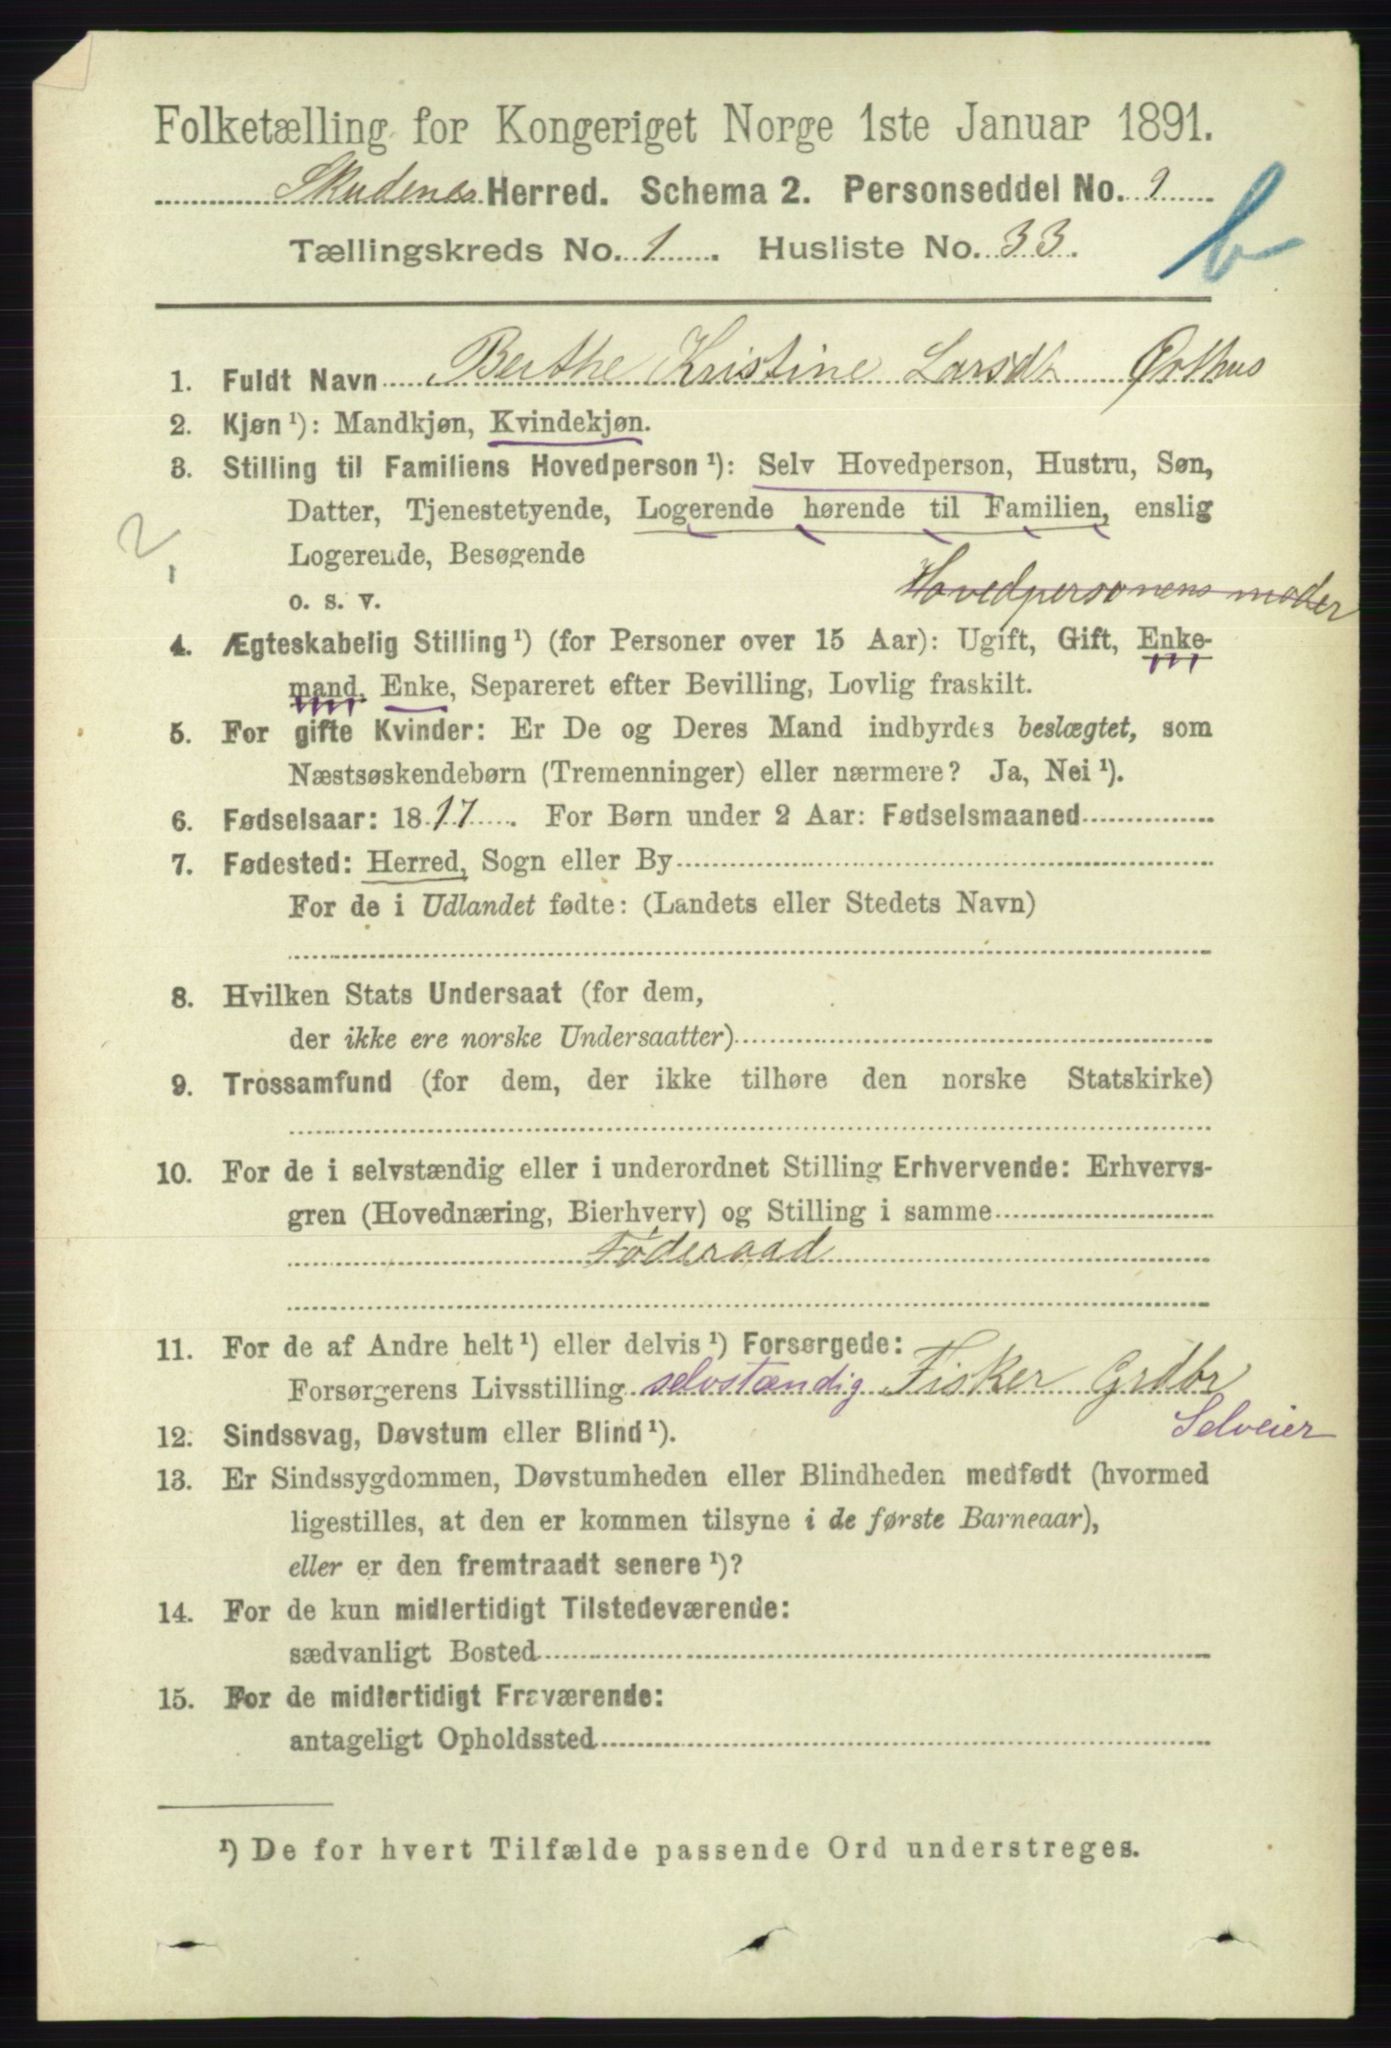 Folketælling for Kongeriget Norge 1ste Januar 1891.
Skudenes Herred. Schema 2. Personseddel No. 9
Tællingskreds No. 1. Husliste No. 33.
b
1. Fuldt Navn Berthe Kristine Larsdt
2. Kjøn ¹): Mandkjøn, Kvindekjøn.
3. Stilling til Familiens Hovedperson ¹): Selv Hovedperson, Hustru, Søn,
Datter, Tjenestetyende, Logerende hørende til Familien, enslig
Logerende, Besøgende
o. s. v. Hovedpersonens moder
2
4. Ægteskabelig Stilling ¹) (for Personer over 15 Aar): Ugift, Gift, Enke-
mand, Enke, Separeret efter Bevilling, Lovlig fraskilt.
5. For gifte Kvinder: Er De og Deres Mand indbyrdes beslægtet, som
Næstsøskendebørn (Tremenninger) eller nærmere? Ja, Nei ¹).
6. Fødselsaar: 1817. For Børn under 2 Aar: Fødselsmaaned
7. Fødested: Herred, Sogn eller By
For de i Udlandet fødte: (Landets eller Stedets Navn)
8. Hvilken Stats Undersaat (for dem,
der ikke ere norske Undersaatter)
9. Trossamfund (for dem, der ikke tilhøre den norske Statskirke)
10. For de i selvstændig eller i underordnet Stilling Erhvervende: Erhvervs-
gren (Hovednæring, Bierhverv) og Stilling i samme
Føderaad
11. For de af Andre helt ¹) eller delvis ¹) Forsørgede:
Forsørgerens Livsstilling selvstændig Fisker Grdbr
Selveier
12. Sindssvag, Døvstum eller Blind ¹).
13. Er Sindssygdommen, Døvstumheden eller Blindheden medfødt (hvormed
ligestilles, at den er kommen tilsyne i de første Barneaar),
eller er den fremtraadt senere ¹)?
14. For de kun midlertidigt Tilstedeværende:
sædvanligt Bosted
15. For de midlertidigt Fraværende:
antageligt Opholdssted
¹) De for hvert Tilfælde passende Ord understreges.